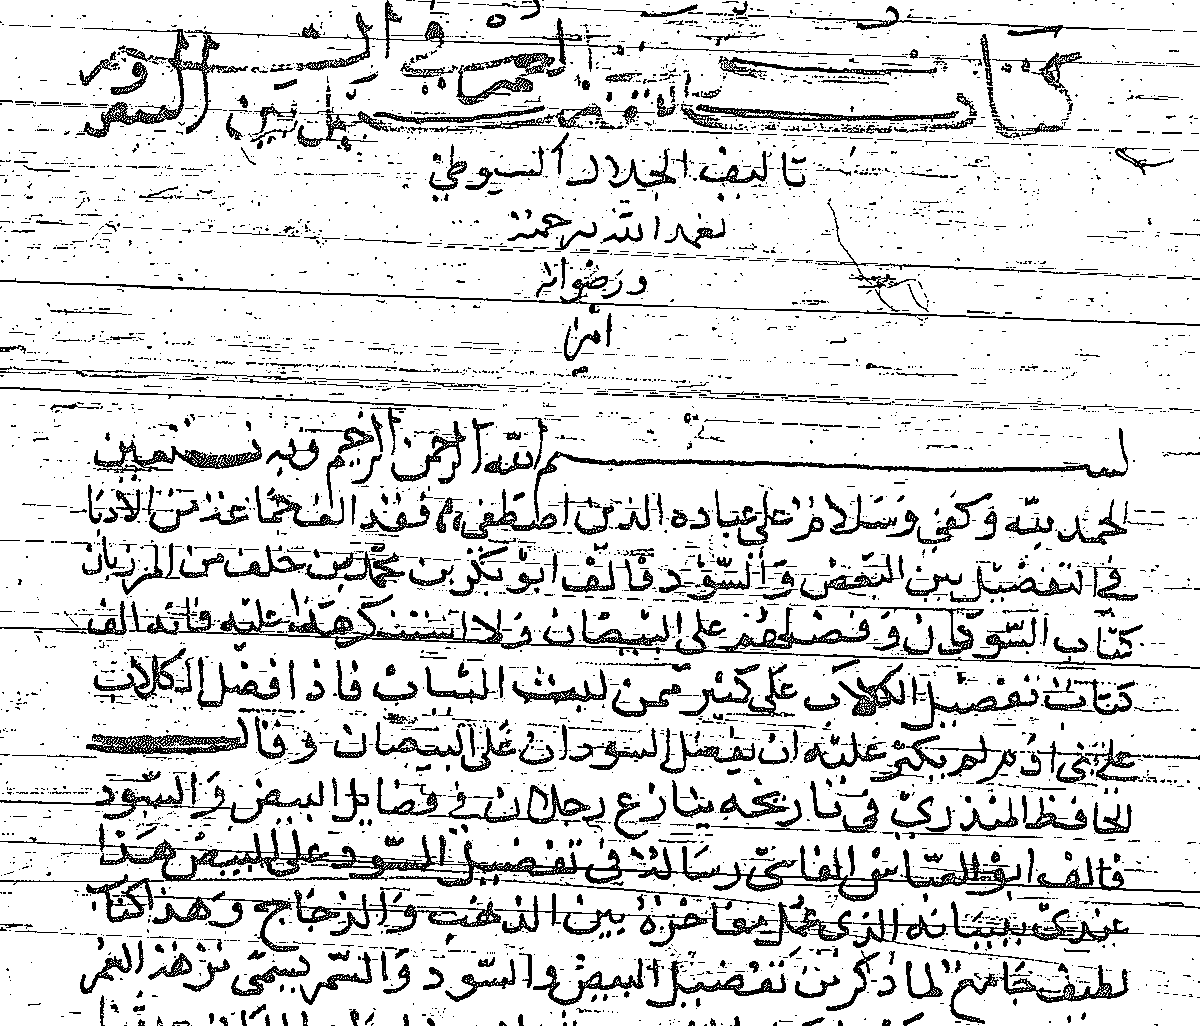 كتاب نزهة العمر في
التفضيل بين البيض والسود والسمر
تاليف الجلال السيوطي
تغمد الله برحمته
ورضوانه
امين
بسم الله الرحمن الرحيم وبه نستعين
الحمد لله وكفى وسلام على عباده الذين اصطفى فقد الف جماعة من الادبا
في التفضيل بين البيض والسود فالف ابو بكر بن محمد بن خلف من المرزبان
كتاب السودان وفضلهم على البيضان ولا استنكر هذا عليه فانه الف
كتاب تفضيل الكلاب على كثير ممن لبس الثياب فاذا فضل الكلاب
على بني ادم لم يكثر عليه ان يفضل السودان على البيضان وقال
الحافظ المنذري في تاريخه يتنازع رجلان في فضايل البيض والسود
فالف ابو العباس الناشي رسالة في تفضيل السود على البيض هذا
عندي ببيانه الذي عمل مفاخرة بين الذهب والزجاج وهذا كتاب
لطيف جامع لما ذكر من تفضيل البيض والسود والسمر يسمى نزهة العمر